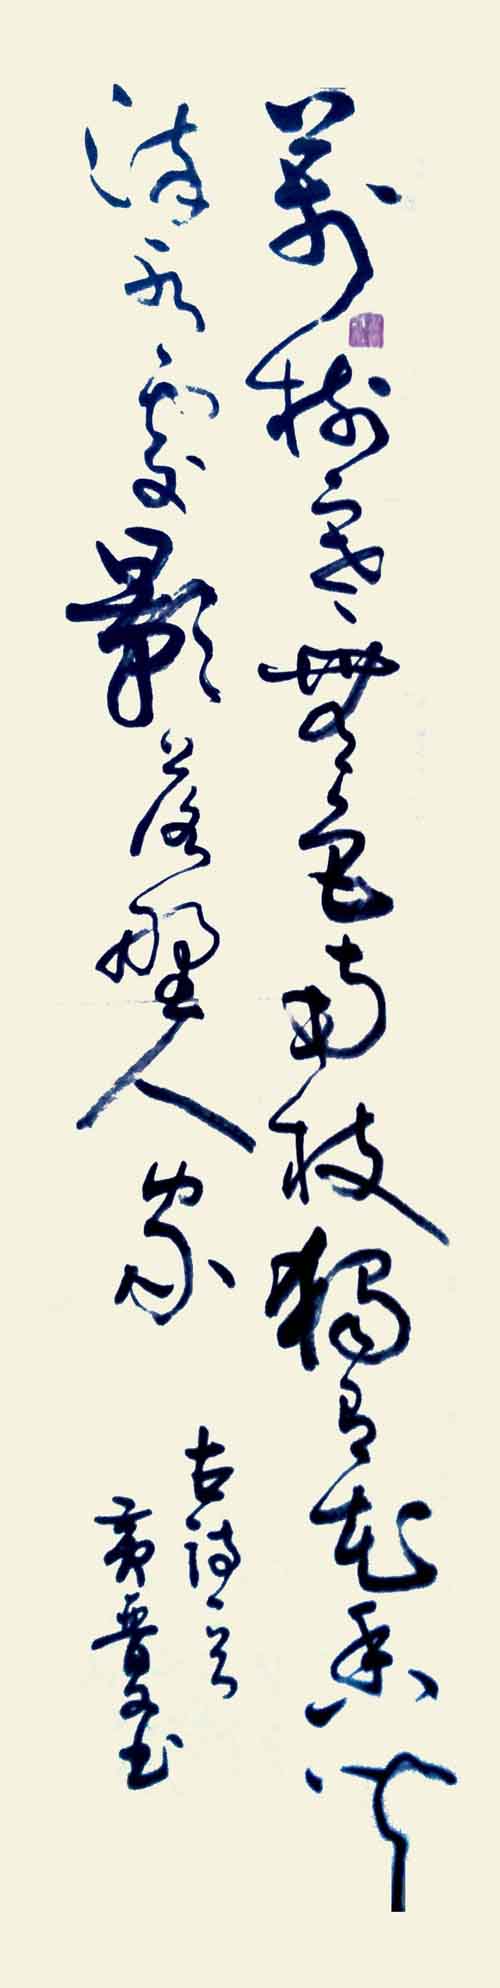 萬樹寒無色南枝獨有花香聞
流水處影落野人家
古詩一首
黃晋文书